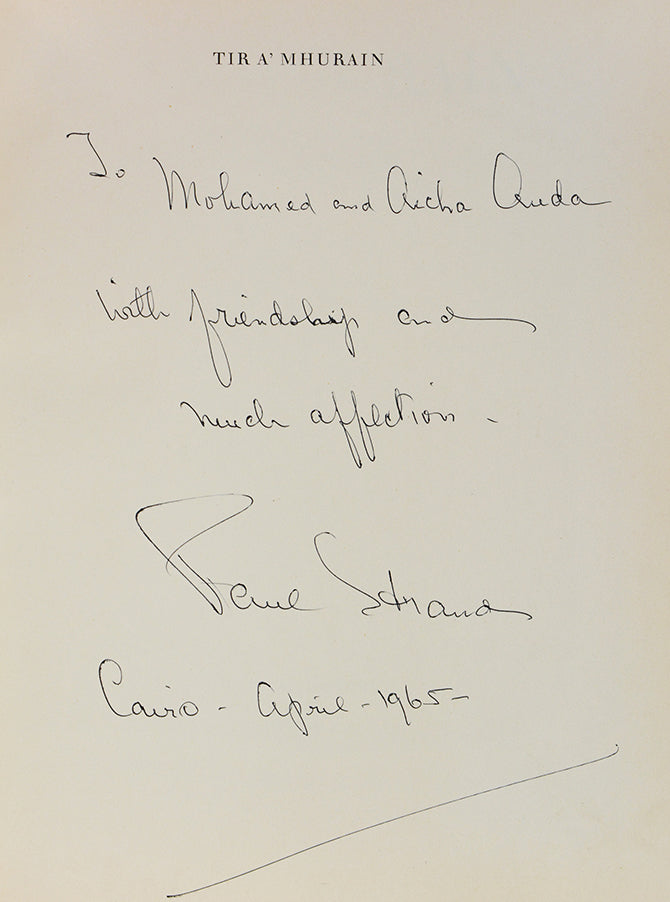 TIR A' MHURAIN
To Mohamed and Aicha Auda
with friendship and
much affection -
Paul Strand
Cairo - April - 1965 -